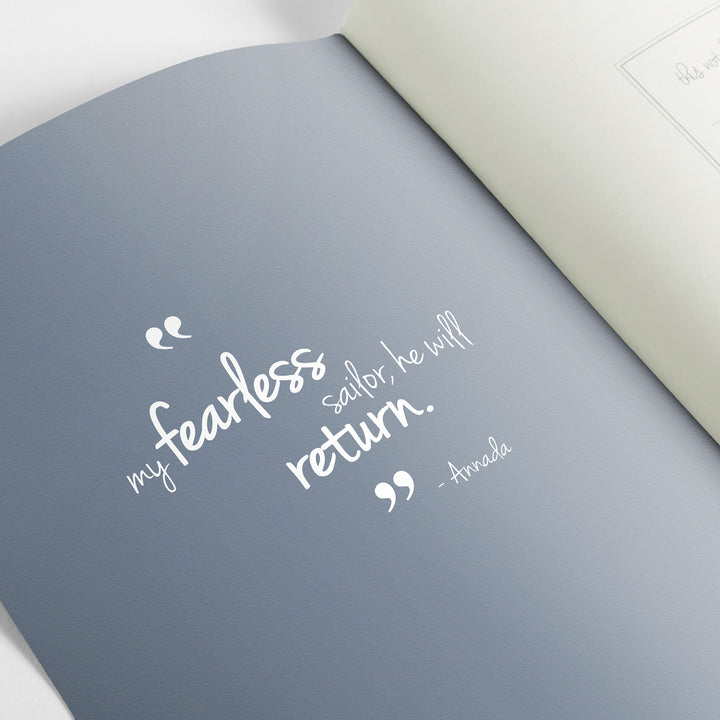 “
my fearless
sailor, he will
return.
”
- Annada
this not